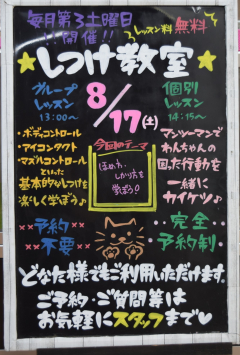 毎月第3土曜日
!! 開催!!
レッスン料 無料
★しつけ教室★
グループ
レッスン
13:00〜
8/17(土)
個別
レッスン
14:15〜
・ボディコントロール
・アイコンタクト
・マズルコントロール
といった
基本的なしつけを
楽しく学ぼう♪
今回のテーマ
ほめ方、
しかり方を
学ぼう!!
マンツーマンで
わんちゃんの
困った行動を
一緒に
カイケツ♪
××予約
××不要
完全
予約制
どなた様でもご利用いただけます。
ご予約・ご質問等は
お気軽にスタッフまで♡